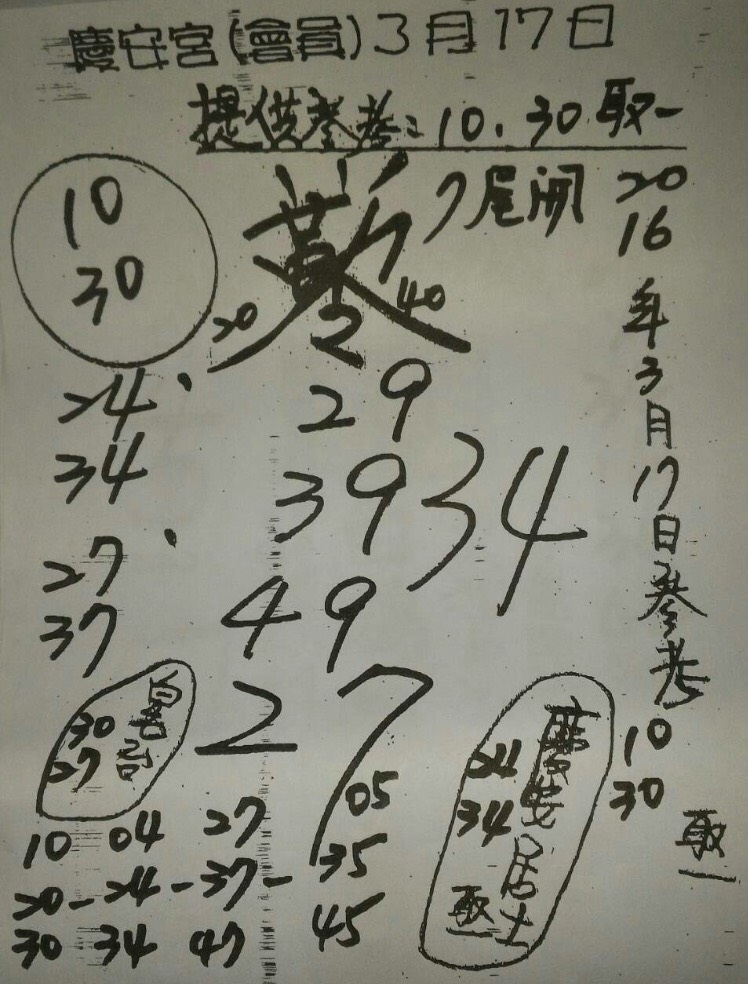 慶安宮(會員)3月17日
提供參考:10.30取一
10
30
7尾開
20
40
2
24
34
27
37
29
39
49
34
27
2016年3月17日參考
10
30
取一
30
27
慶安居士
24
34
取一
10 04 27 05
20-24-37-35
30 34 47 45